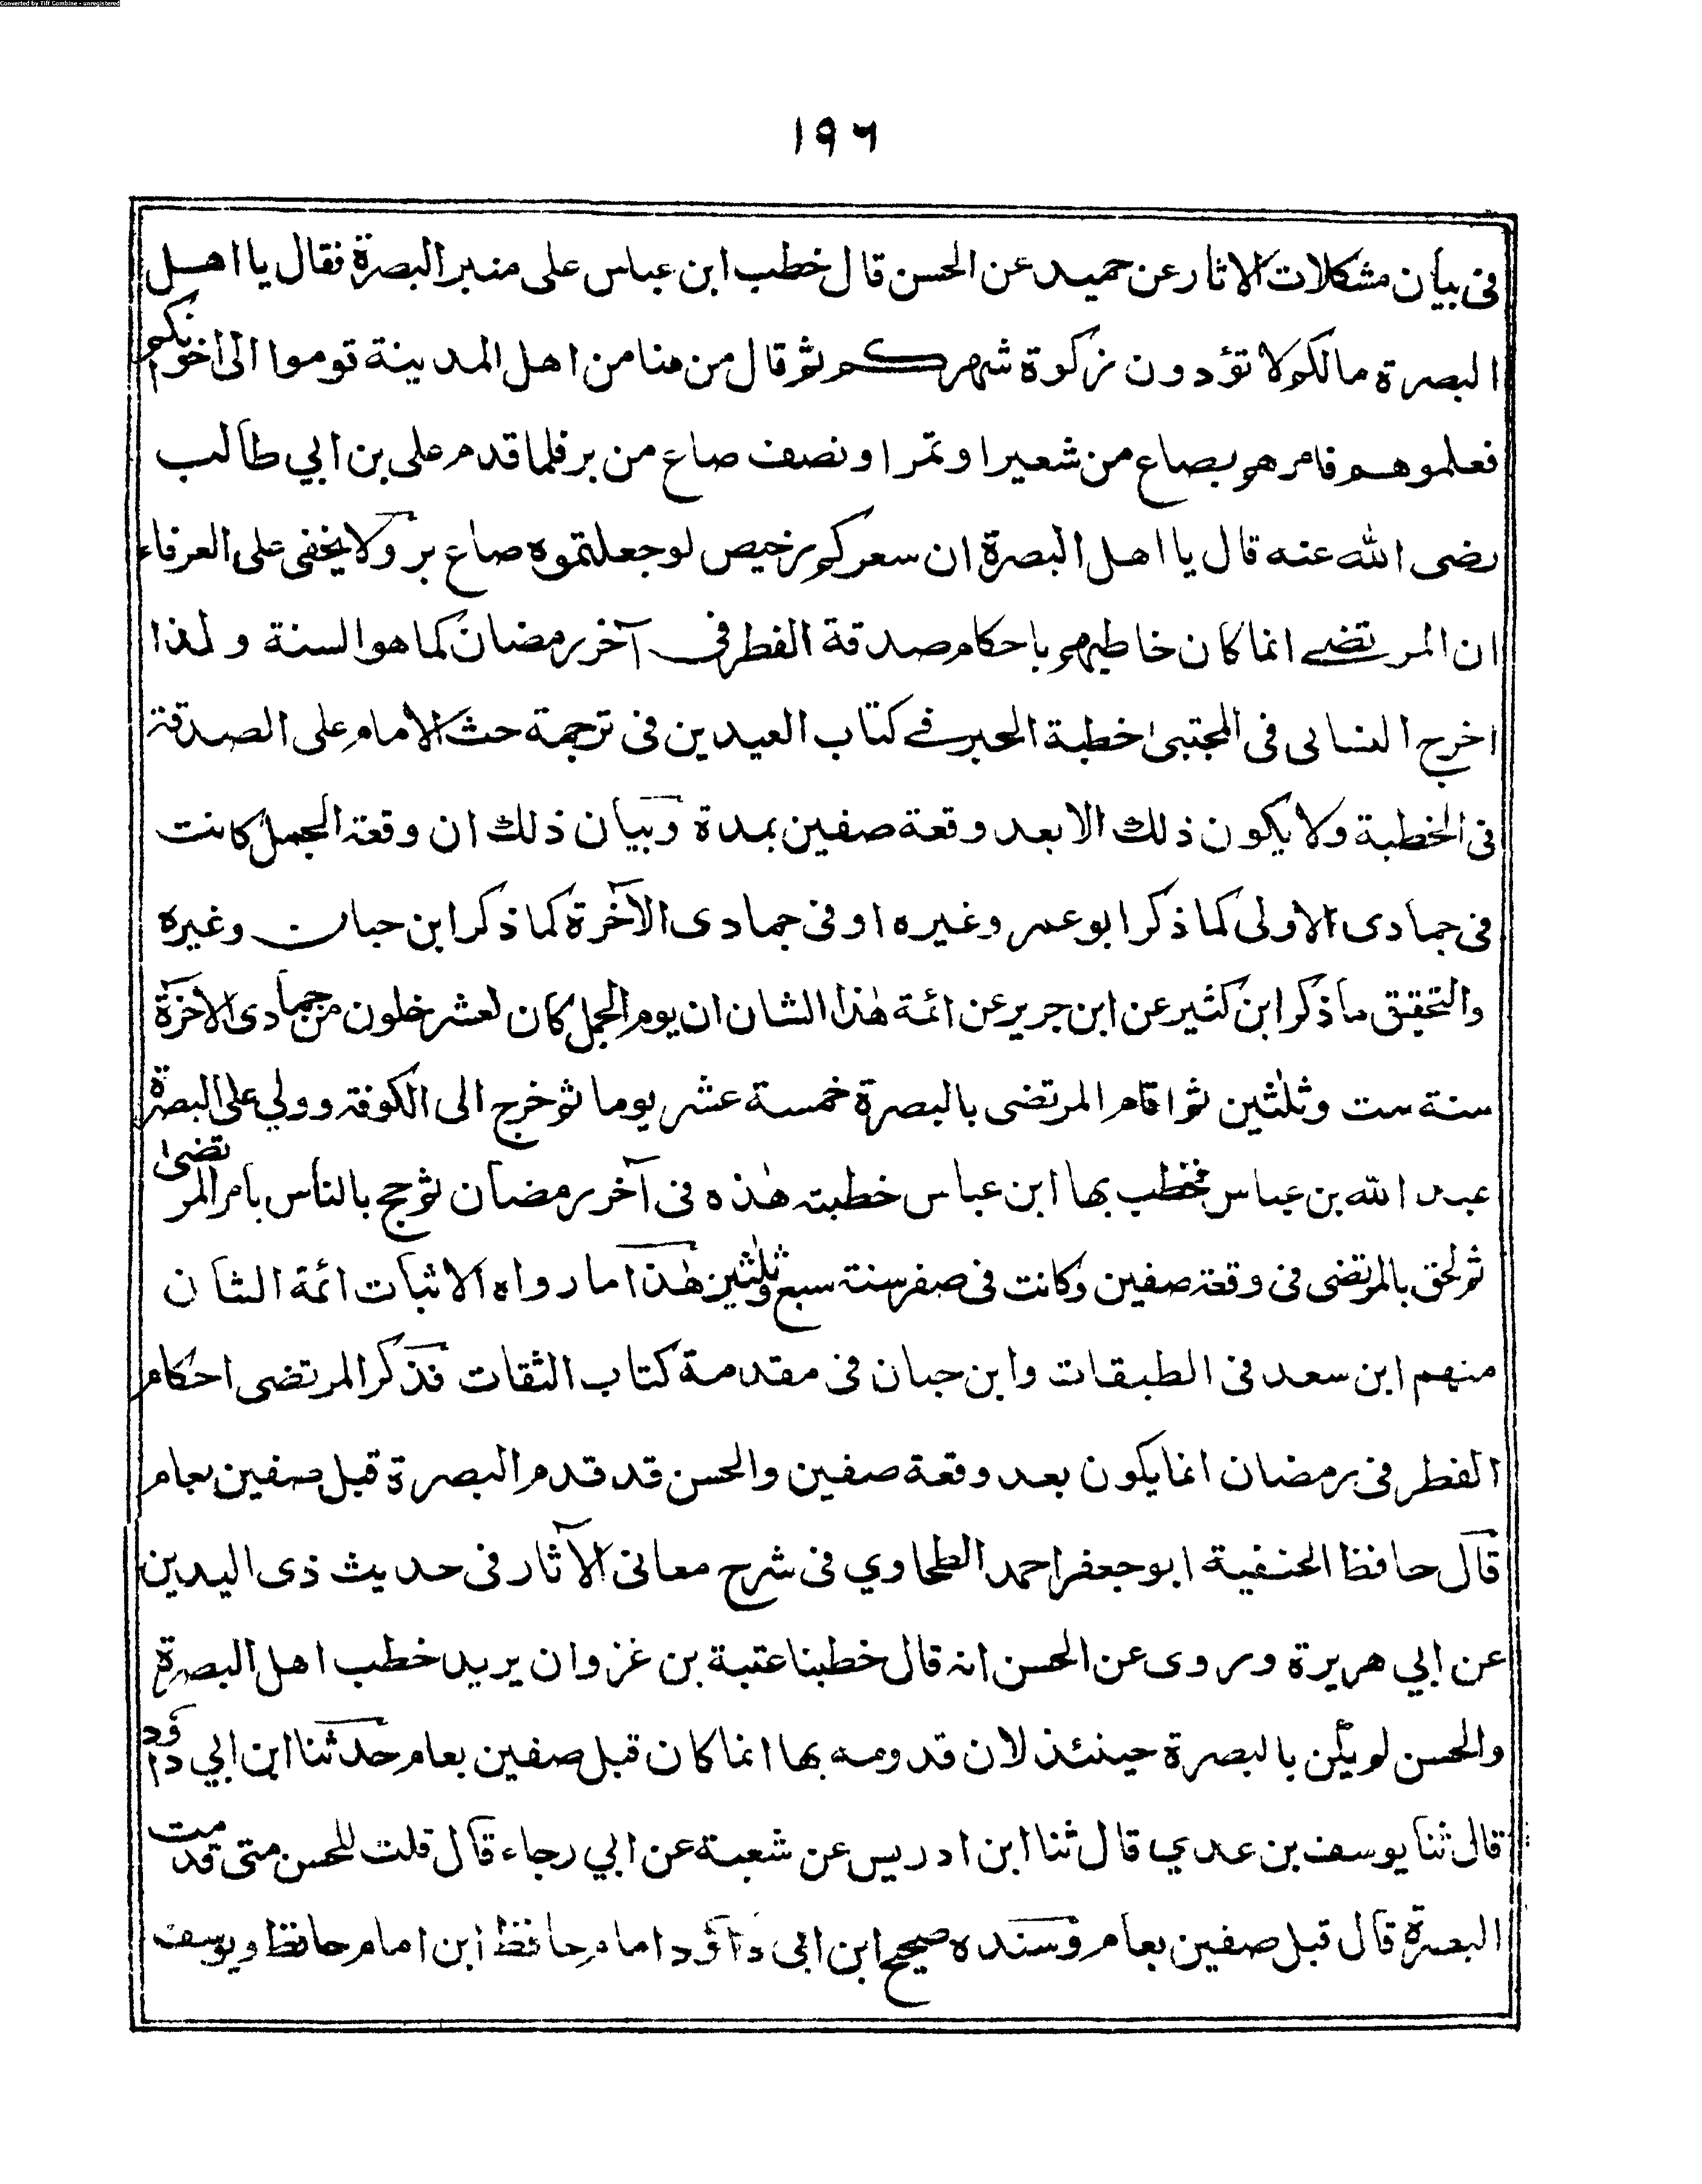 Converted by Tiff Combine - unregistered
١٩٦
فى بيان مشكلات الاثار عن حميد عن الحسن قال خطب ابن عباس على منبر البصرة فقال يا اهل
البصرة مالكم لا تؤدون زكوة شهركم ثم قال من هنا من اهل المدينة قوموا الى اخوانكم
فعلموهم فامرهم بصاع من شعير او تمر او نصف صاع من بر فلما قدم على بن ابي طالب
رضى الله عنه قال يا اهل البصرة ان سعركم رخيص لو جعلتموه صاع بر ولا يخفى على العرفاء
ان المرتضے انما كان خاطبهم باحكام صدقة الفطر فى آخر رمضان كما هو السنة ولهذا
اخرج النسائى فى المجتبىٰ خطبة الحبر فے كتاب العيدين فى ترجمة حث الامام على الصدقة
فى الخطبة ولا يكون ذلك الا بعد وقعة صفين بمدة وبيان ذلك ان وقعة الجمل كانت
فى جمادى الاولى كما ذكر ابو عمر وغيره او فى جمادى الآخرة كما ذكر ابن حبان وغيره
والتحقيق ما ذكر ابن كثير عن ابن جرير عن ائمة هٰذا الشان ان يوم الجمل كان لعشر خلون من جمادى الآخرة
سنة ست وثلٰثين ثم اقام المرتضى بالبصرة خمسة عشر يوما ثم خرج الى الكوفة وولي على البصرة
عبد الله بن عباس فخطب بها ابن عباس خطبته هٰذه فى آخر رمضان ثم حج بالناس بامر المرتضىٰ
ثم لحق بالمرتضى فى وقعة صفين وكانت فى صفر سنة سبع وثلٰثين هٰذا ما رواه الاثبات ائمة الشان
منهم ابن سعد فى الطبقات وابن حبان فى مقدمة كتاب الثقات فذكر المرتضى احكام
الفطر فى رمضان انما يكون بعد وقعة صفين والحسن قد قدم البصرة قبل صفين بعام
قال حافظ الحنفية ابو جعفر احمد الطحاوي فى شرح معانى الآثار فى حديث ذى اليدين
عن ابي هريرة وروى عن الحسن انه قال خطبنا عتبة بن غزوان يريد خطب اهل البصرة
والحسن لم يكن بالبصرة حينئذ لان قدومه بها انما كان قبل صفين بعام حدثنا ابن ابي داؤد
قال ثنا يوسف بن عدي قال ثنا ابن ادريس عن شعبة عن ابي رجاء قال قلت للحسن متى قدمت
البصرة قال قبل صفين بعام وسنده صحيح ابن ابى داؤد امام حافظ ابن امام حافظ ويوسف